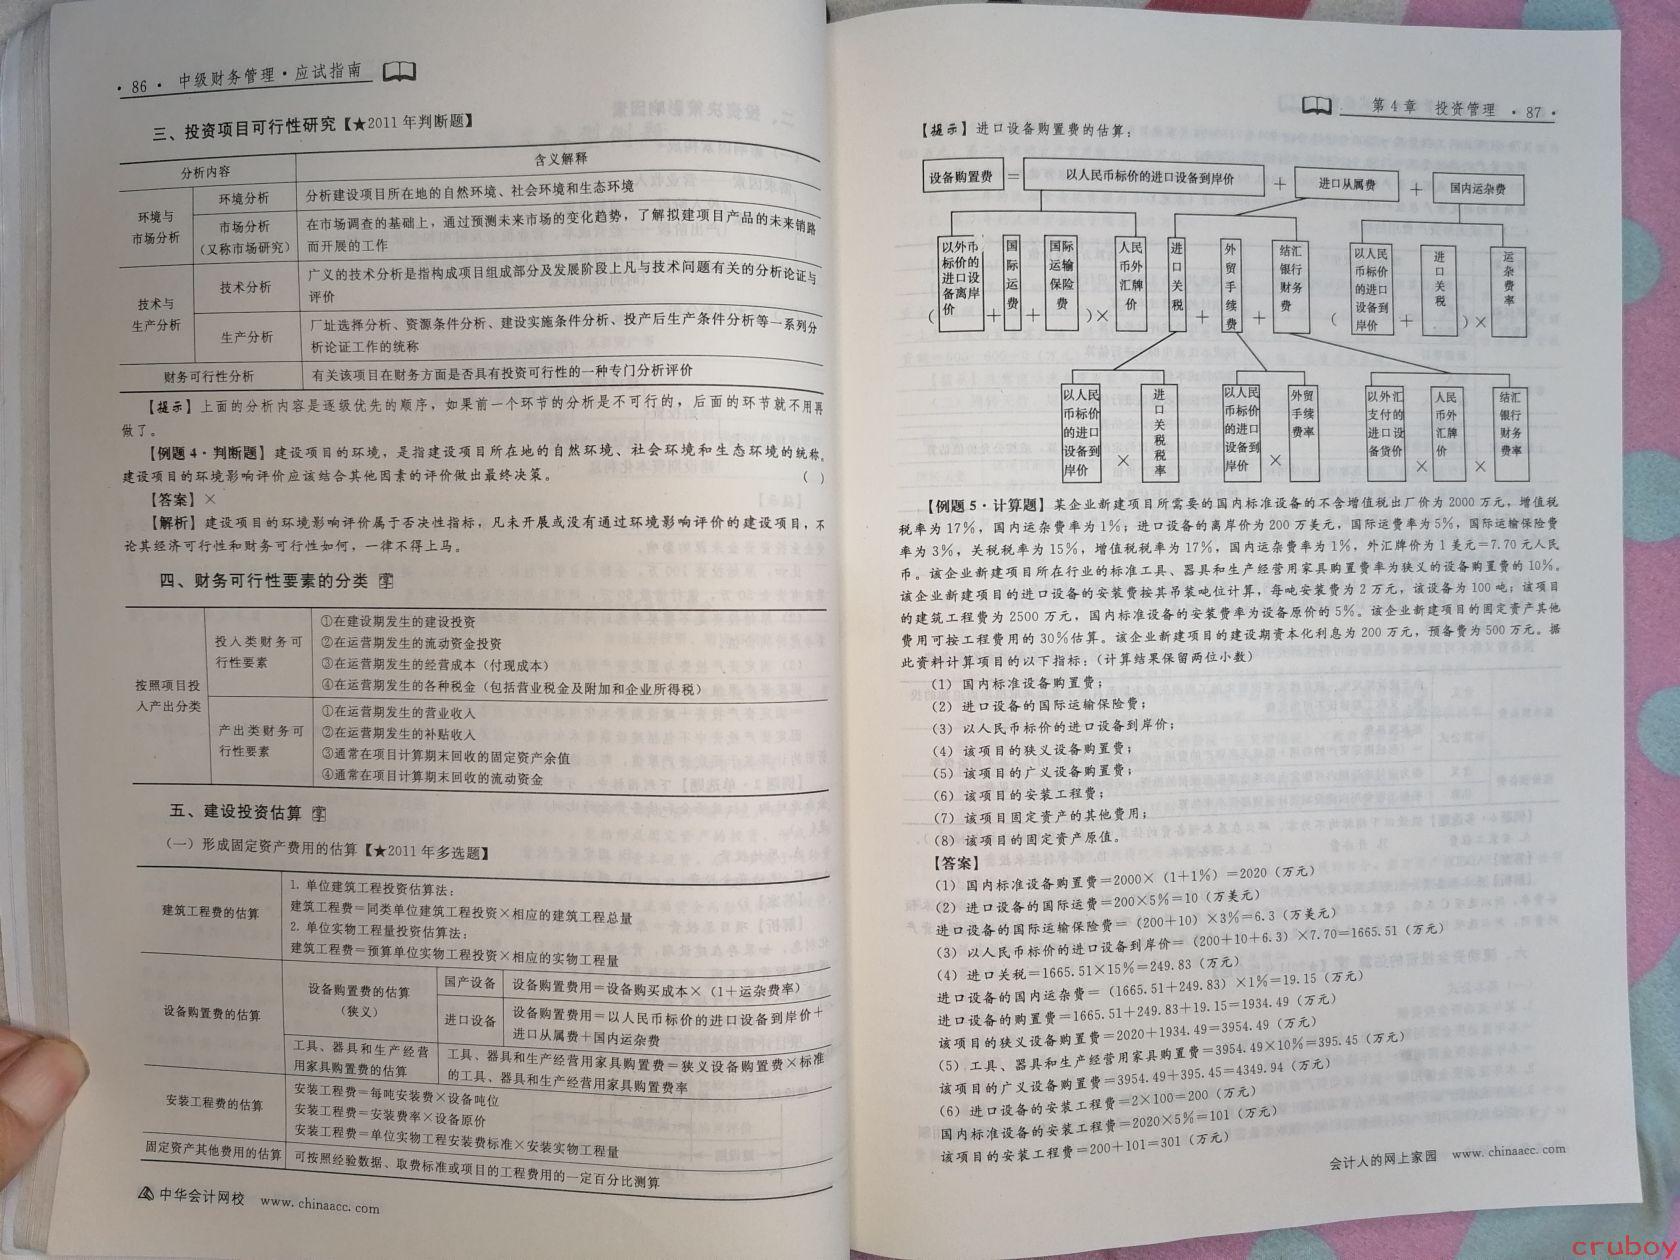 · 86 · 中级财务管理·应试指南
三、投资项目可行性研究【★2011年判断题】
分析内容 含义解释
环境与
市场分析
环境分析 分析建设项目所在地的自然环境、社会环境和生态环境
市场分析
(又称市场研究)
在市场调查的基础上，通过预测未来市场的变化趋势，了解拟建项目产品的未来销路
而开展的工作
技术与
生产分析
技术分析
广义的技术分析是指构成项目组成部分及发展阶段上凡与技术问题有关的分析论证与
评价
生产分析
厂址选择分析、资源条件分析、建设实施条件分析、投产后生产条件分析等一系列分
析论证工作的统称
财务可行性分析 有关该项目在财务方面是否具有投资可行性的一种专门分析评价
【提示】上面的分析内容是逐级优先的顺序，如果前一个环节的分析是不可行的，后面的环节就不用再
做了。
【例题4·判断题】建设项目的环境，是指建设项目所在地的自然环境、社会环境和生态环境的统称。
建设项目的环境影响评价应该结合其他因素的评价做出最终决策。 ( )
【答案】×
【解析】建设项目的环境影响评价属于否决性指标，凡未开展或没有通过环境影响评价的建设项目，不
论其经济可行性和财务可行性如何，一律不得上马。
四、财务可行性要素的分类
按照项目投
入产出分类
投入类财务可
行性要素
①在建设期发生的建设投资
②在运营期发生的流动资金投资
③在运营期发生的经营成本（付现成本）
④在运营期发生的各种税金（包括营业税金及附加和企业所得税）
产出类财务可
行性要素
①在运营期发生的营业收入
②在运营期发生的补贴收入
③通常在项目计算期末回收的固定资产余值
④通常在项目计算期末回收的流动资金
五、建设投资估算
（一）形成固定资产费用的估算【★2011年多选题】
建筑工程费的估算
1. 单位建筑工程投资估算法：
建筑工程费＝同类单位建筑工程投资×相应的建筑工程总量
2. 单位实物工程量投资估算法：
建筑工程费＝预算单位实物工程投资×相应的实物工程量
设备购置费的估算
设备购置费的估算
（狭义）
国产设备 设备购置费用＝设备购买成本×（1＋运杂费率）
进口设备
设备购置费用＝以人民币标价的进口设备到岸价＋
进口从属费＋国内运杂费
工具、器具和生产经营
用家具购置费的估算
工具、器具和生产经营用家具购置费＝狭义设备购置费×标准
的工具、器具和生产经营用家具购置费率
安装工程费的估算
安装工程费＝每吨安装费×设备吨位
安装工程费＝安装费率×设备原价
安装工程费＝单位实物工程安装费标准×安装实物工程量
固定资产其他费用的估算 可按照经验数据、取费标准或项目的工程费用的一定百分比测算
中华会计网校 www.chinaacc.com
第4章 投资管理 · 87 ·
【提示】进口设备购置费的估算：
设备购置费 ＝ 以人民币标价的进口设备到岸价 ＋ 进口从属费 ＋ 国内运杂费
（ 以外币标价的进口设备离岸价 ＋ 国际运费 ＋ 国际运输保险费 ）× 人民币外汇牌价
进口关税 ＋ 外贸手续费 ＋ 结汇银行财务费
（ 以人民币标价的进口设备到岸价 ＋ 进口关税 ）× 运杂费率
以人民币标价的进口设备到岸价 × 进口关税税率
以人民币标价的进口设备到岸价 × 外贸手续费率
以外汇支付的进口设备货价 × 人民币外汇牌价 × 结汇银行财务费率
【例题5·计算题】某企业新建项目所需要的国内标准设备的不含增值税出厂价为2000万元，增值税
税率为17%，国内运杂费率为1%；进口设备的离岸价为200万美元，国际运费率为5%，国际运输保险费
率为3%，关税税率为15%，增值税税率为17%，国内运杂费率为1%，外汇牌价为1美元＝7.70元人民
币。该企业新建项目所在行业的标准工具、器具和生产经营用家具购置费率为狭义的设备购置费的10%。
该企业新建项目的进口设备的安装费按其吊装吨位计算，每吨安装费为2万元，该设备为100吨；该项目
的建筑工程费为2500万元，国内标准设备的安装费率为设备原价的5%。该企业新建项目的固定资产其他
费用可按工程费用的30%估算。该企业新建项目的建设期资本化利息为200万元，预备费为500万元。据
此资料计算项目的以下指标：（计算结果保留两位小数）
（1）国内标准设备购置费；
（2）进口设备的国际运输保险费；
（3）以人民币标价的进口设备到岸价；
（4）该项目的狭义设备购置费；
（5）该项目的广义设备购置费；
（6）该项目的安装工程费；
（7）该项目固定资产的其他费用；
（8）该项目的固定资产原值。
【答案】
（1）国内标准设备购置费＝2000×（1＋1%）＝2020（万元）
（2）进口设备的国际运费＝200×5%＝10（万美元）
进口设备的国际运输保险费＝（200＋10）×3%＝6.3（万美元）
（3）以人民币标价的进口设备到岸价＝（200＋10＋6.3）×7.70＝1665.51（万元）
（4）进口关税＝1665.51×15%＝249.83（万元）
进口设备的国内运杂费＝（1665.51＋249.83）×1%＝19.15（万元）
进口设备的购置费＝1665.51＋249.83＋19.15＝1934.49（万元）
该项目的狭义设备购置费＝2020＋1934.49＝3954.49（万元）
（5）工具、器具和生产经营用家具购置费＝3954.49×10%＝395.45（万元）
该项目的广义设备购置费＝3954.49＋395.45＝4349.94（万元）
（6）进口设备的安装工程费＝2×100＝200（万元）
国内标准设备的安装工程费＝2020×5%＝101（万元）
该项目的安装工程费＝200＋101＝301（万元）
会计人的网上家园 www.chinaacc.com
cruboy